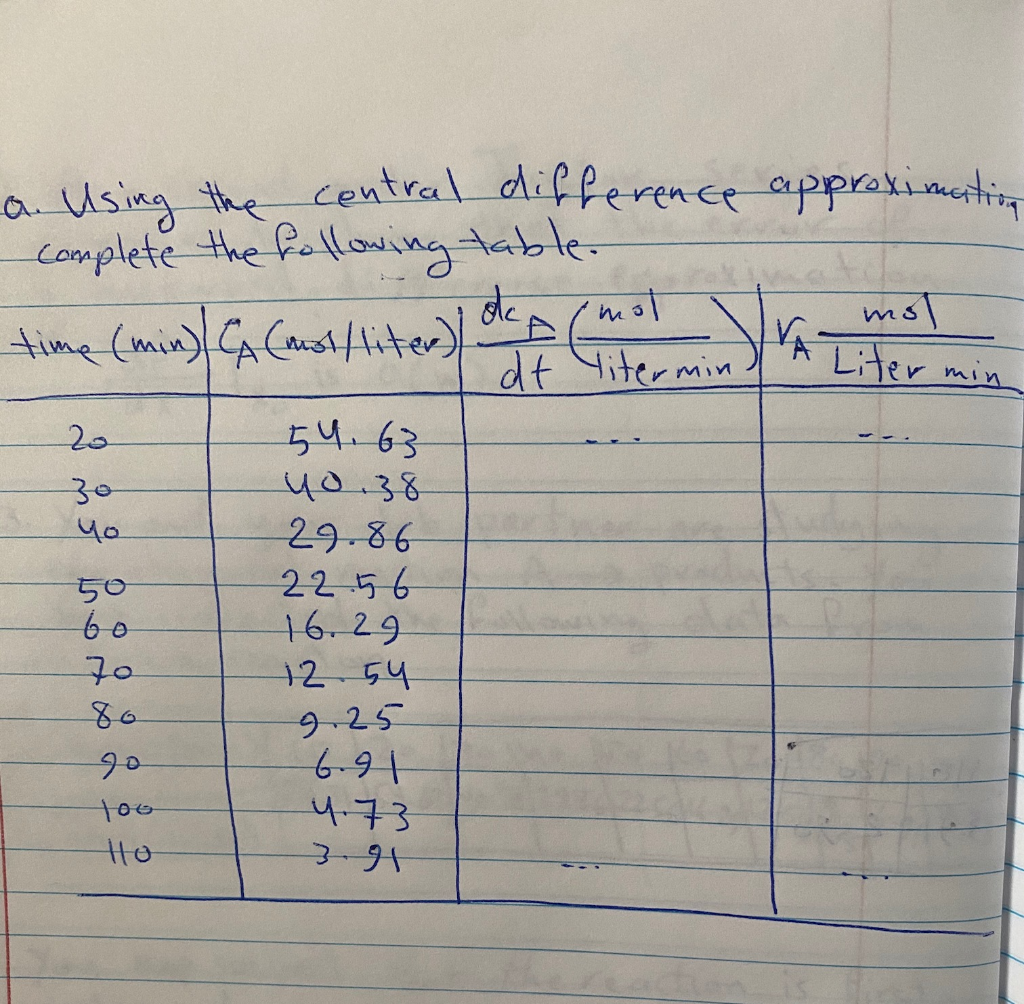 a. Using the central difference approximation
complete the following table.
time (min) | CA (mol/liter) | dcA/dt (mol/liter min) | rA mol/Liter min
20 54.63 --- ---
30 40.38
40 29.86
50 22.56
60 16.29
70 12.54
80 9.25
90 6.91
100 4.73
110 3.91 --- ---